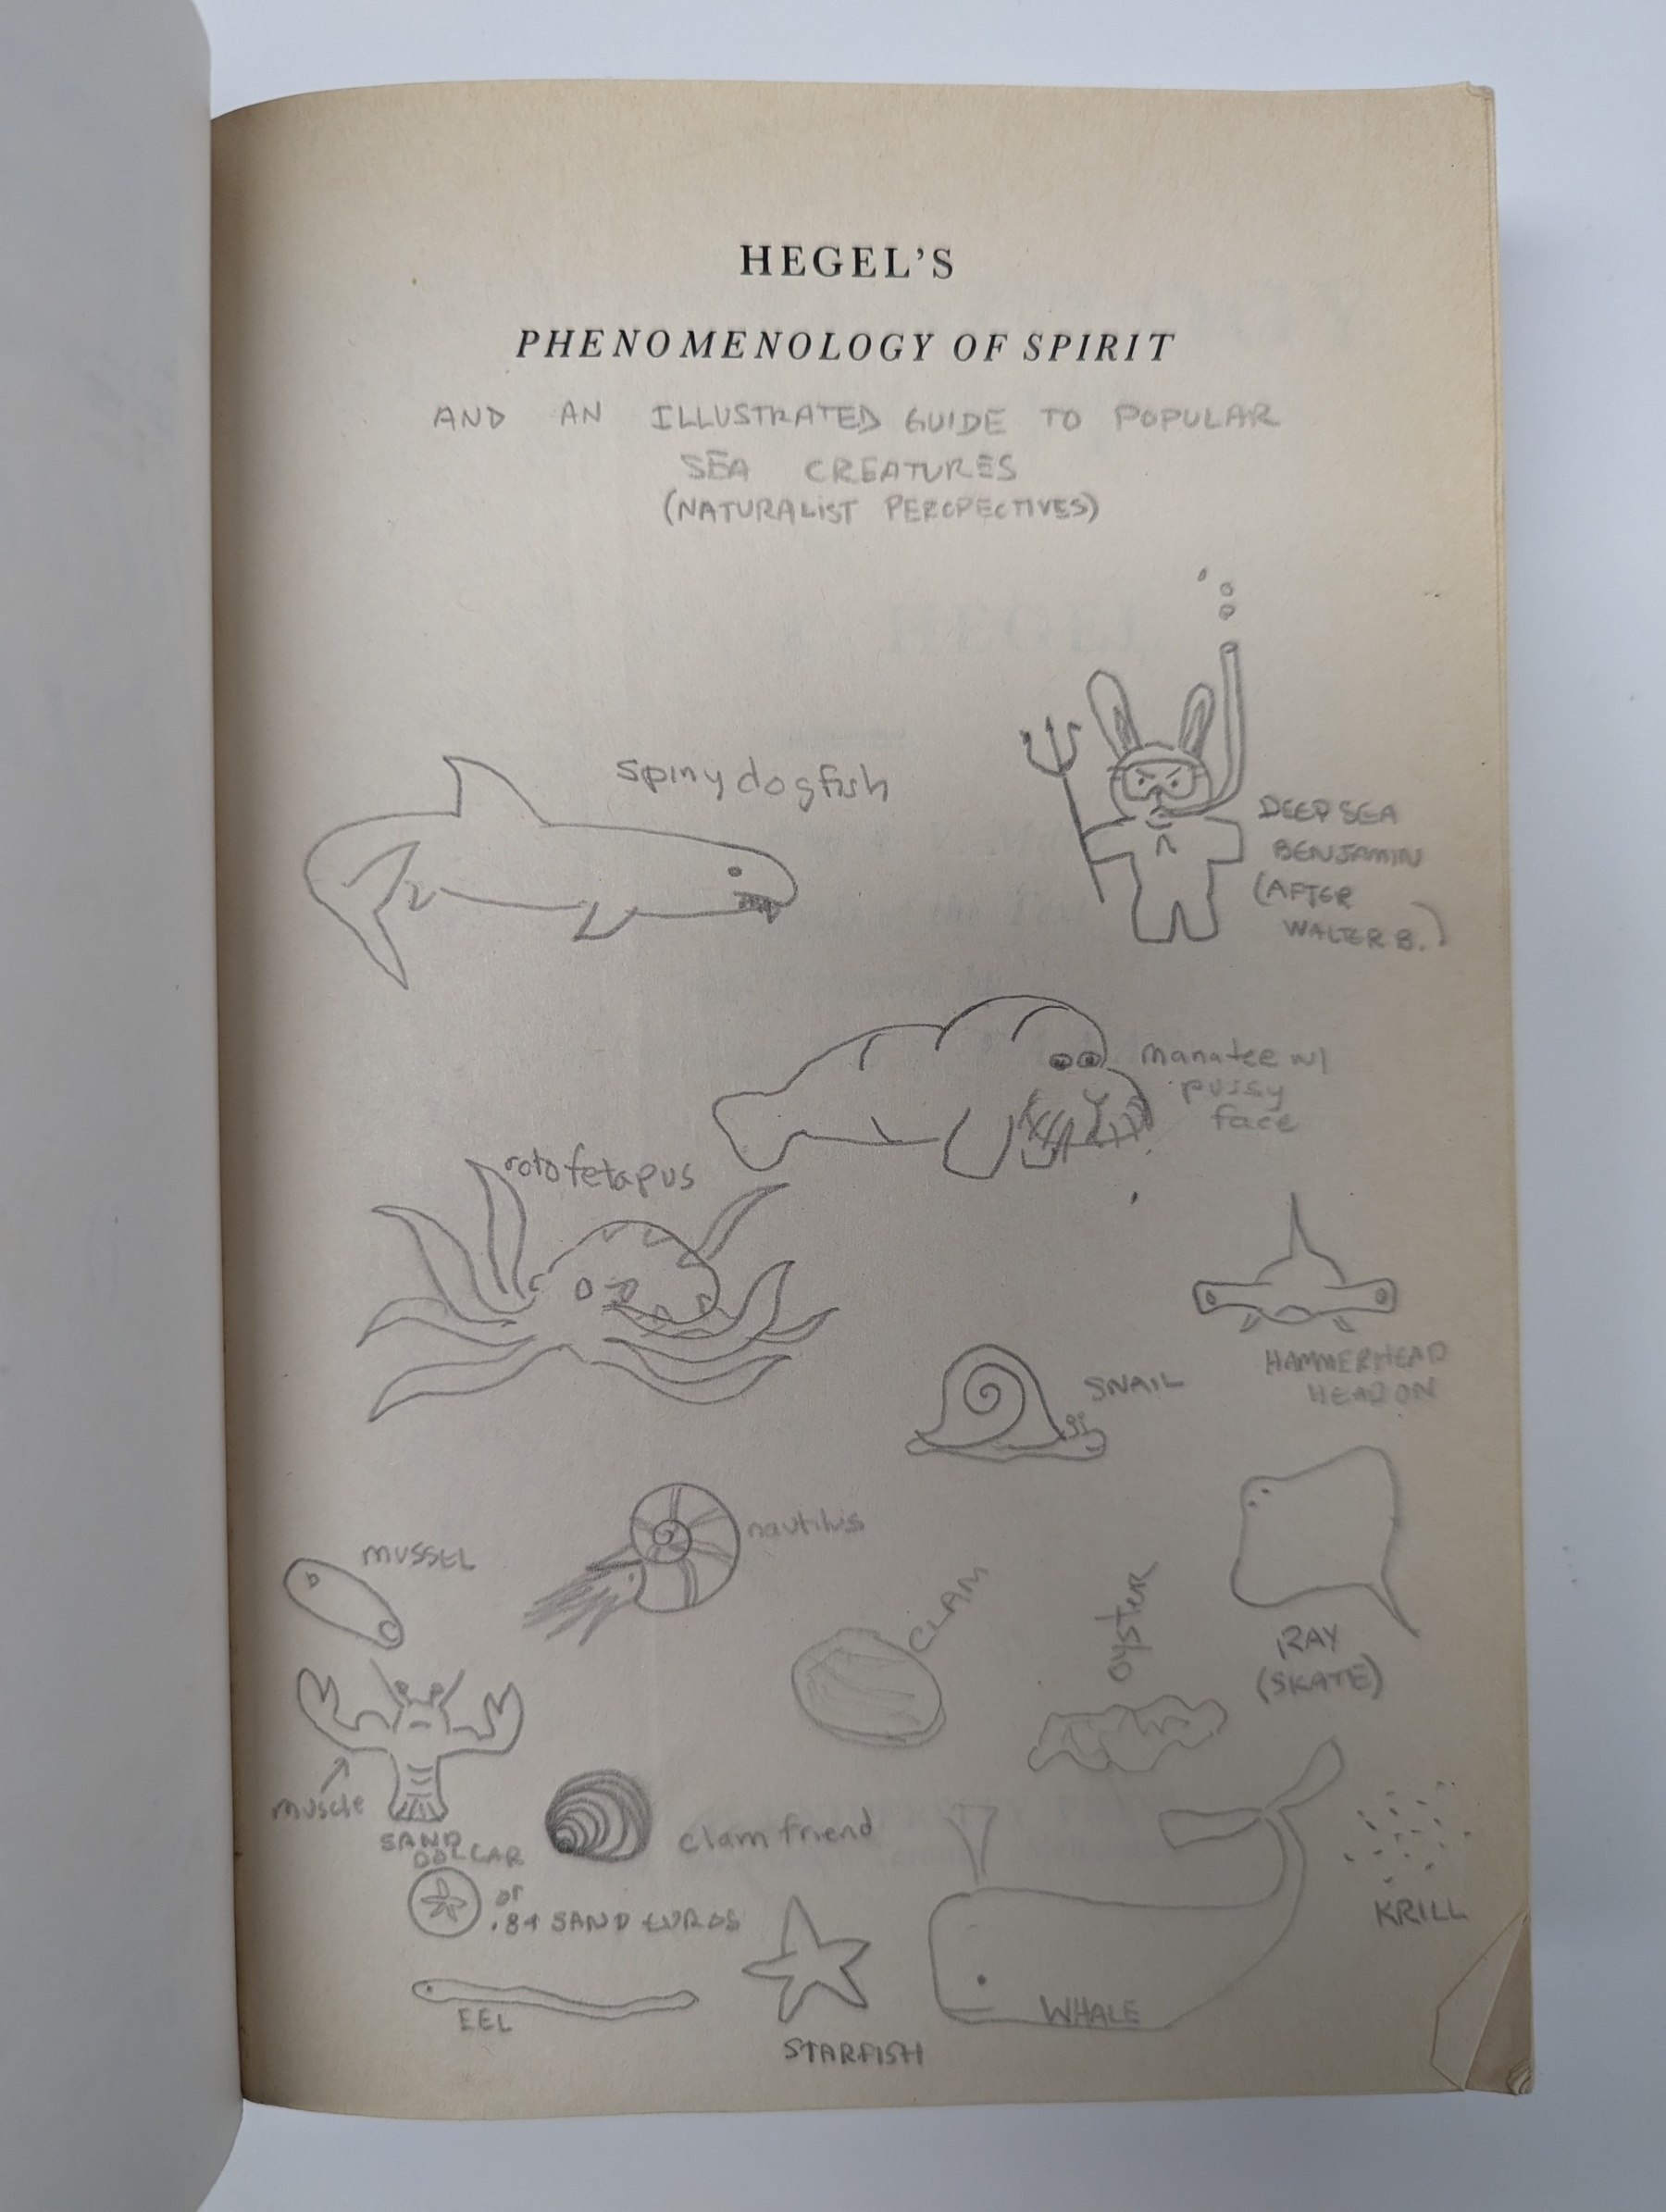 HEGEL'S
PHENOMENOLOGY OF SPIRIT
AND AN ILLUSTRATED GUIDE TO POPULAR
SEA CREATURES
(NATURALIST PERCPECTIVES)
spiny dogfish
DEEP SEA
BENJAMIN
(AFTER
WALTER B.)
manatee w/
pussy
face
rotofetapus
HAMMERHEAD
HEAD ON
SNAIL
nautilus
MUSSEL
CLAM
OYSTER
RAY
(SKATE)
muscle
clam friend
SAND
DOLLAR
or
.84 SAND EUROS
KRILL
EEL
WHALE
STARFISH